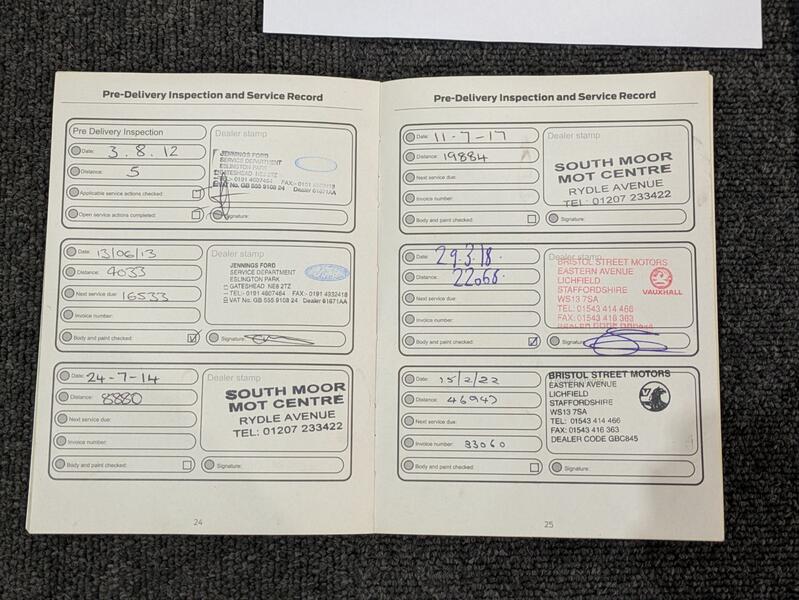 Pre-Delivery Inspection and Service Record
Pre Delivery Inspection
Date: 3.8.12
Distance: 5
Applicable service actions checked:
Open service actions completed:
Dealer stamp
JENNINGS FORD
SERVICE DEPARTMENT
ESLINGTON PARK
GATESHEAD NE8 2TZ
TEL:- 0191 4607464 FAX:- 0191 4932418
VAT No. GB 555 9108 24 Dealer 61671AA
Signature:
Date: 13/06/13
Distance: 4033
Next service due: 16533
Invoice number:
Body and paint checked:
Dealer stamp
JENNINGS FORD
SERVICE DEPARTMENT
ESLINGTON PARK
GATESHEAD NE8 2TZ
TEL:- 0191 4607464 FAX:- 0191 4932418
VAT No. GB 555 9108 24 Dealer 61671AA
Signature:
Date: 24-7-14
Distance: 8880
Next service due:
Invoice number:
Body and paint checked:
Dealer stamp
SOUTH MOOR
MOT CENTRE
RYDLE AVENUE
TEL: 01207 233422
Signature:
24
Pre-Delivery Inspection and Service Record
Date: 11-7-17
Distance: 19884
Next service due:
Invoice number:
Body and paint checked:
Dealer stamp
SOUTH MOOR
MOT CENTRE
RYDLE AVENUE
TEL: 01207 233422
Signature:
Date: 29.3.18.
Distance: 22068.
Next service due:
Invoice number:
Body and paint checked:
Dealer stamp
BRISTOL STREET MOTORS
EASTERN AVENUE
LICHFIELD
STAFFORDSHIRE
WS13 7SA
TEL: 01543 414 466
FAX: 01543 416 363
DEALER CODE
VAUXHALL
Signature:
Date: 15/2/22
Distance: 46943
Next service due:
Invoice number: 33060
Body and paint checked:
BRISTOL STREET MOTORS
EASTERN AVENUE
LICHFIELD
STAFFORDSHIRE
WS13 7SA
TEL: 01543 414 466
FAX: 01543 416 363
DEALER CODE GBC845
Signature:
25